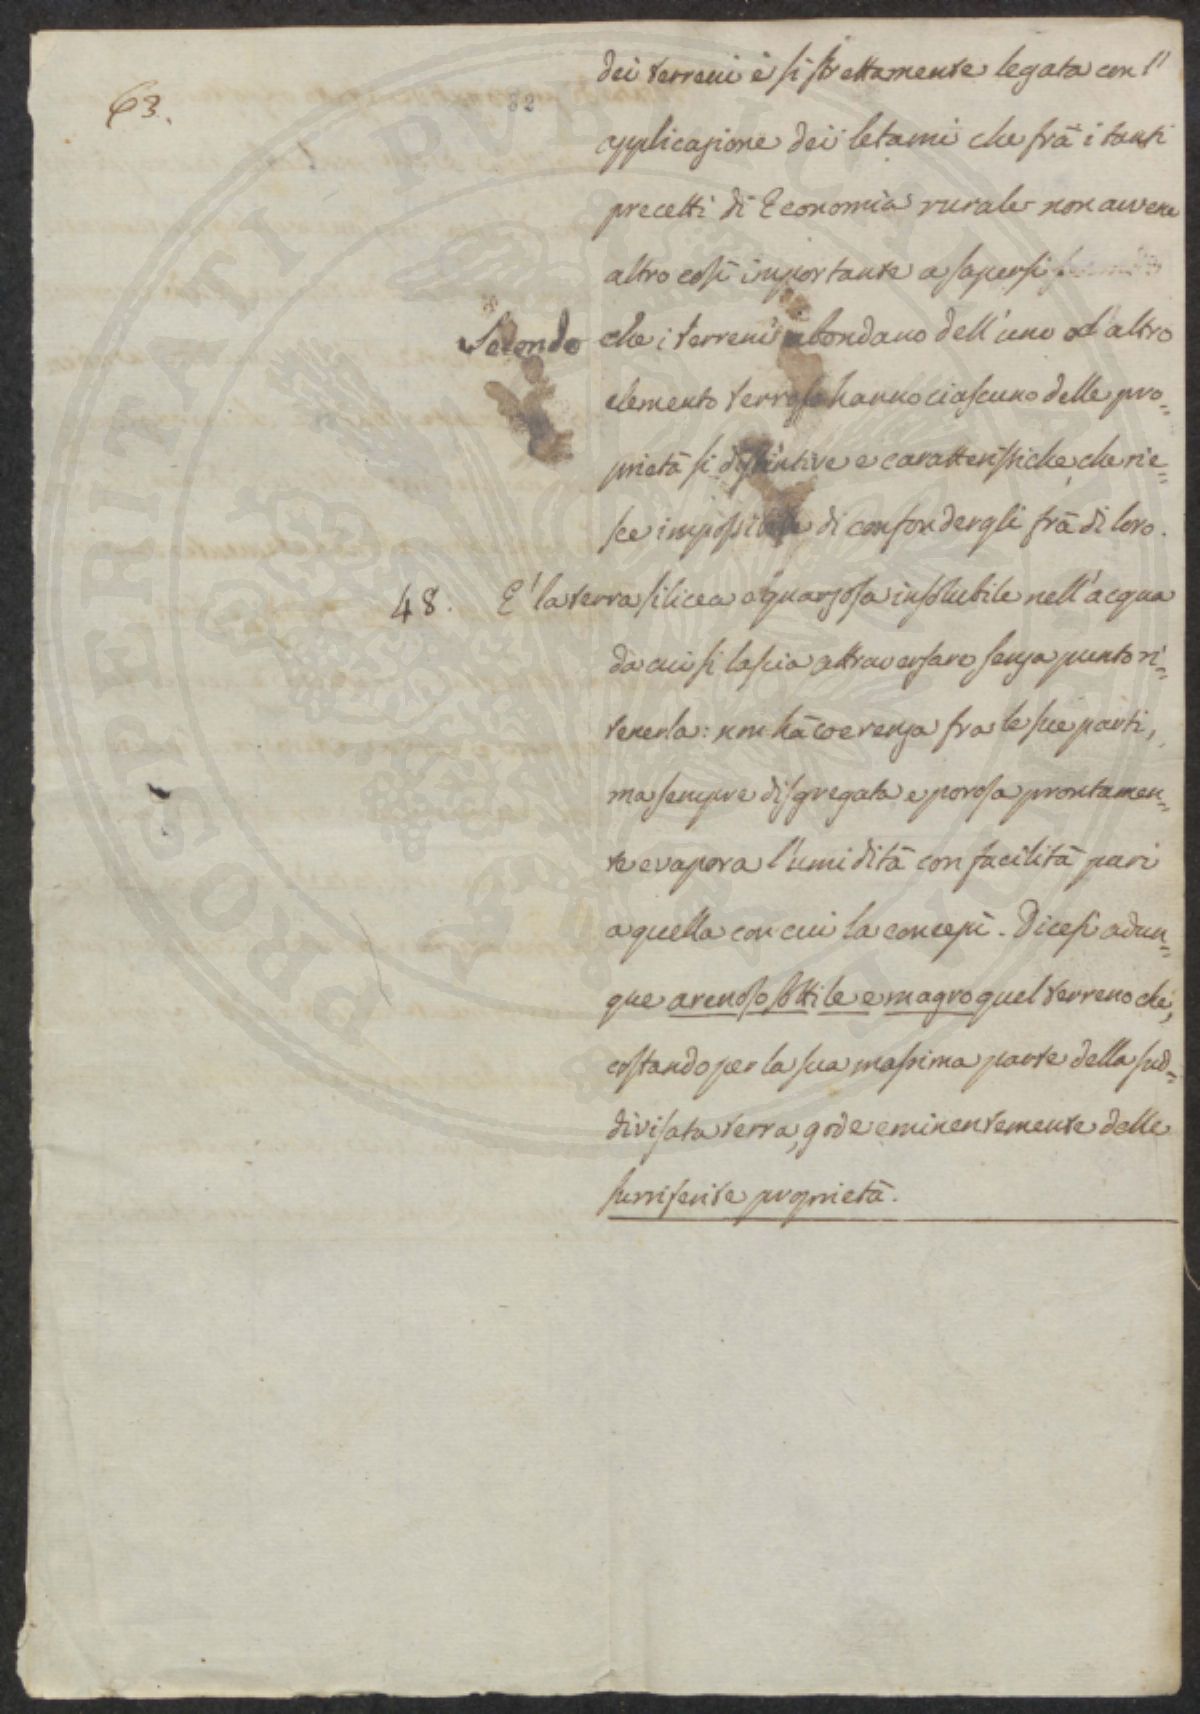 63.
82
dei terreni è si strettamente legata con l'
applicazione dei letami che frà i tanti
precetti di Economia rurale non avvene
altro così importante a sapersi
Secondo che i terreni abondano dell'uno od altro
elemento terroso hanno ciascuno delle pro=
prietà si distintive e caratteristiche, che rie=
sce impossibile di confondergli frà di loro.
48. E' la terra silicea o quarzosa insolubile nell'acqua
da cui si lascia attraversare senza punto ri=
tenerla: non hà coerenza fra le sue parti,
ma sempre disgregata e porosa prontamen=
te evapora l'umidità con facilità pari
a quella con cui la concepì. Dicesi adun=
que arenoso sottile e magro quel terreno che,
costando per la sua massima parte della sud=
divisata terra, gode eminentemente delle
surriferite proprietà.
PROSPERITATI PUBLICAE